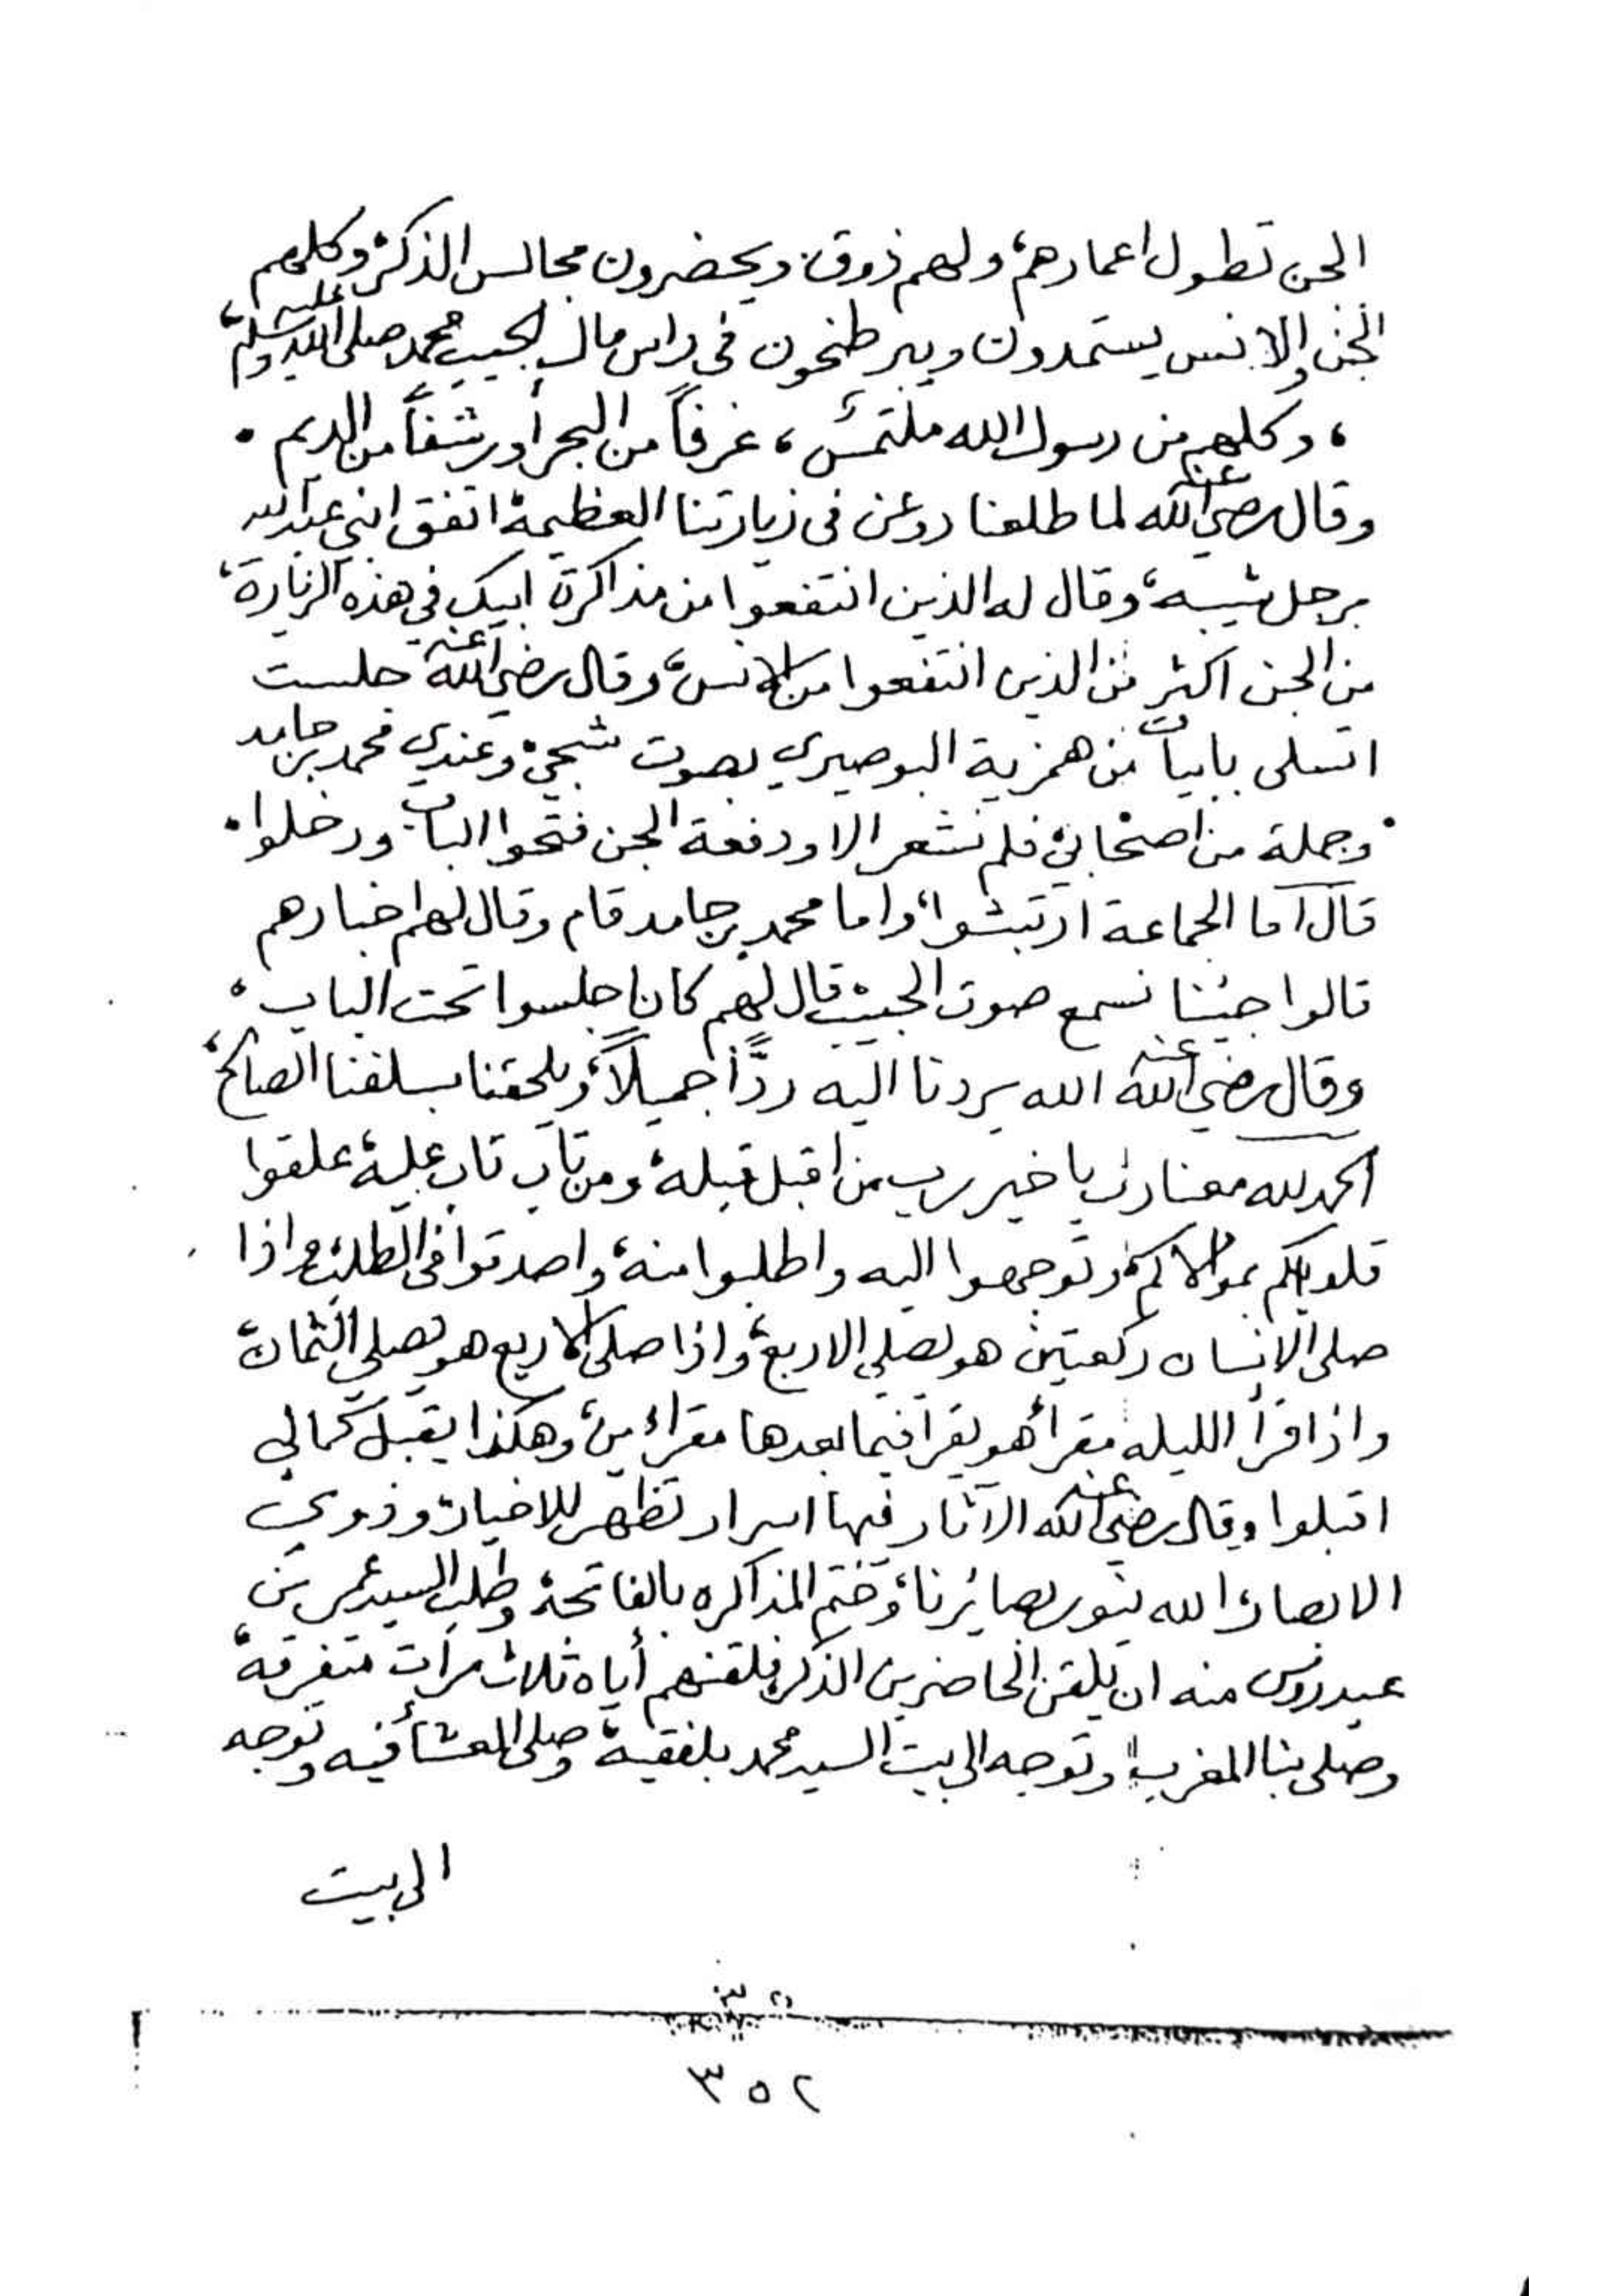 الجن تطول اعمارهم، ولهم ذوق، ويحضرون مجالس الذكر، وكلهم
الجن والانس يستمدون ويبرطحون في راس مال الحبيب محمد صلى الله عليه وسلم،
، وكلهم من رسول الله ملتمسٌ ، غرفاً من البحر أو رشفاً من الديم .
وقال رضي الله عنه لما طلعنا دوعن في زيارتنا العظيمة اتفق ابني عبدالله
برجل شيبه، وقال له الذين انتفعوا من مذاكرة ابيك في هذه الزيارة،
من الجن اكثر من الذين انتفعوا من الانس، وقال رضي الله عنه جلست
اتسلى بابيات من همزية البوصيري بصوت شجي، وعندي محمد بن حامد
وجملة من اصحابي، فلم نشعر الا ودفعة الجن فتحوا الباب ودخلوا .
قال اما الجماعة ارتبشوا، واما محمد بن حامد قام وقال لهم اخباركم
قالوا جئنا نسمع صوت الحبيب، قال لهم كان اجلسوا تحت الباب ،
وقال رضي الله عنه الله يردنا اليه ردّاً جميلاً، ويلحقنا بسلفنا الصالح،
الحمد لله معنا رب يا خير رب، من اقبل قبله، ومن تاب تاب عليه، علقوا
قلوبكم بمولاكم، وتوجهوا اليه واطلبوا منه، واصدقوا في الطلب، واذا
صلى الانسان ركعتين هو يصلي الاربع، واذا صلى الاربع هو يصلي الثمان،
واذا قرأ الليله مقرأ هو يقرأ فيما بعدها مقراءين، وهكذا يقبل كمالي
اقبلوا وقال رضي الله عنه الآثار فيها اسرار تظهر للاخيار، وذوي
الابصار، الله ينور بصائرنا، وختم المذاكره بالفاتحة، وطلب السيد عمر بن
عيدروس منه ان يلقن الحاضرين الذكر، فلقنهم أياه ثلاث مرات متفرقة،
وصلى بنا المغرب، وتوجه الى بيت السيد محمد بلفقيه، وصلى العشاء فيه وتوجه
الى بيت
٣٥٢